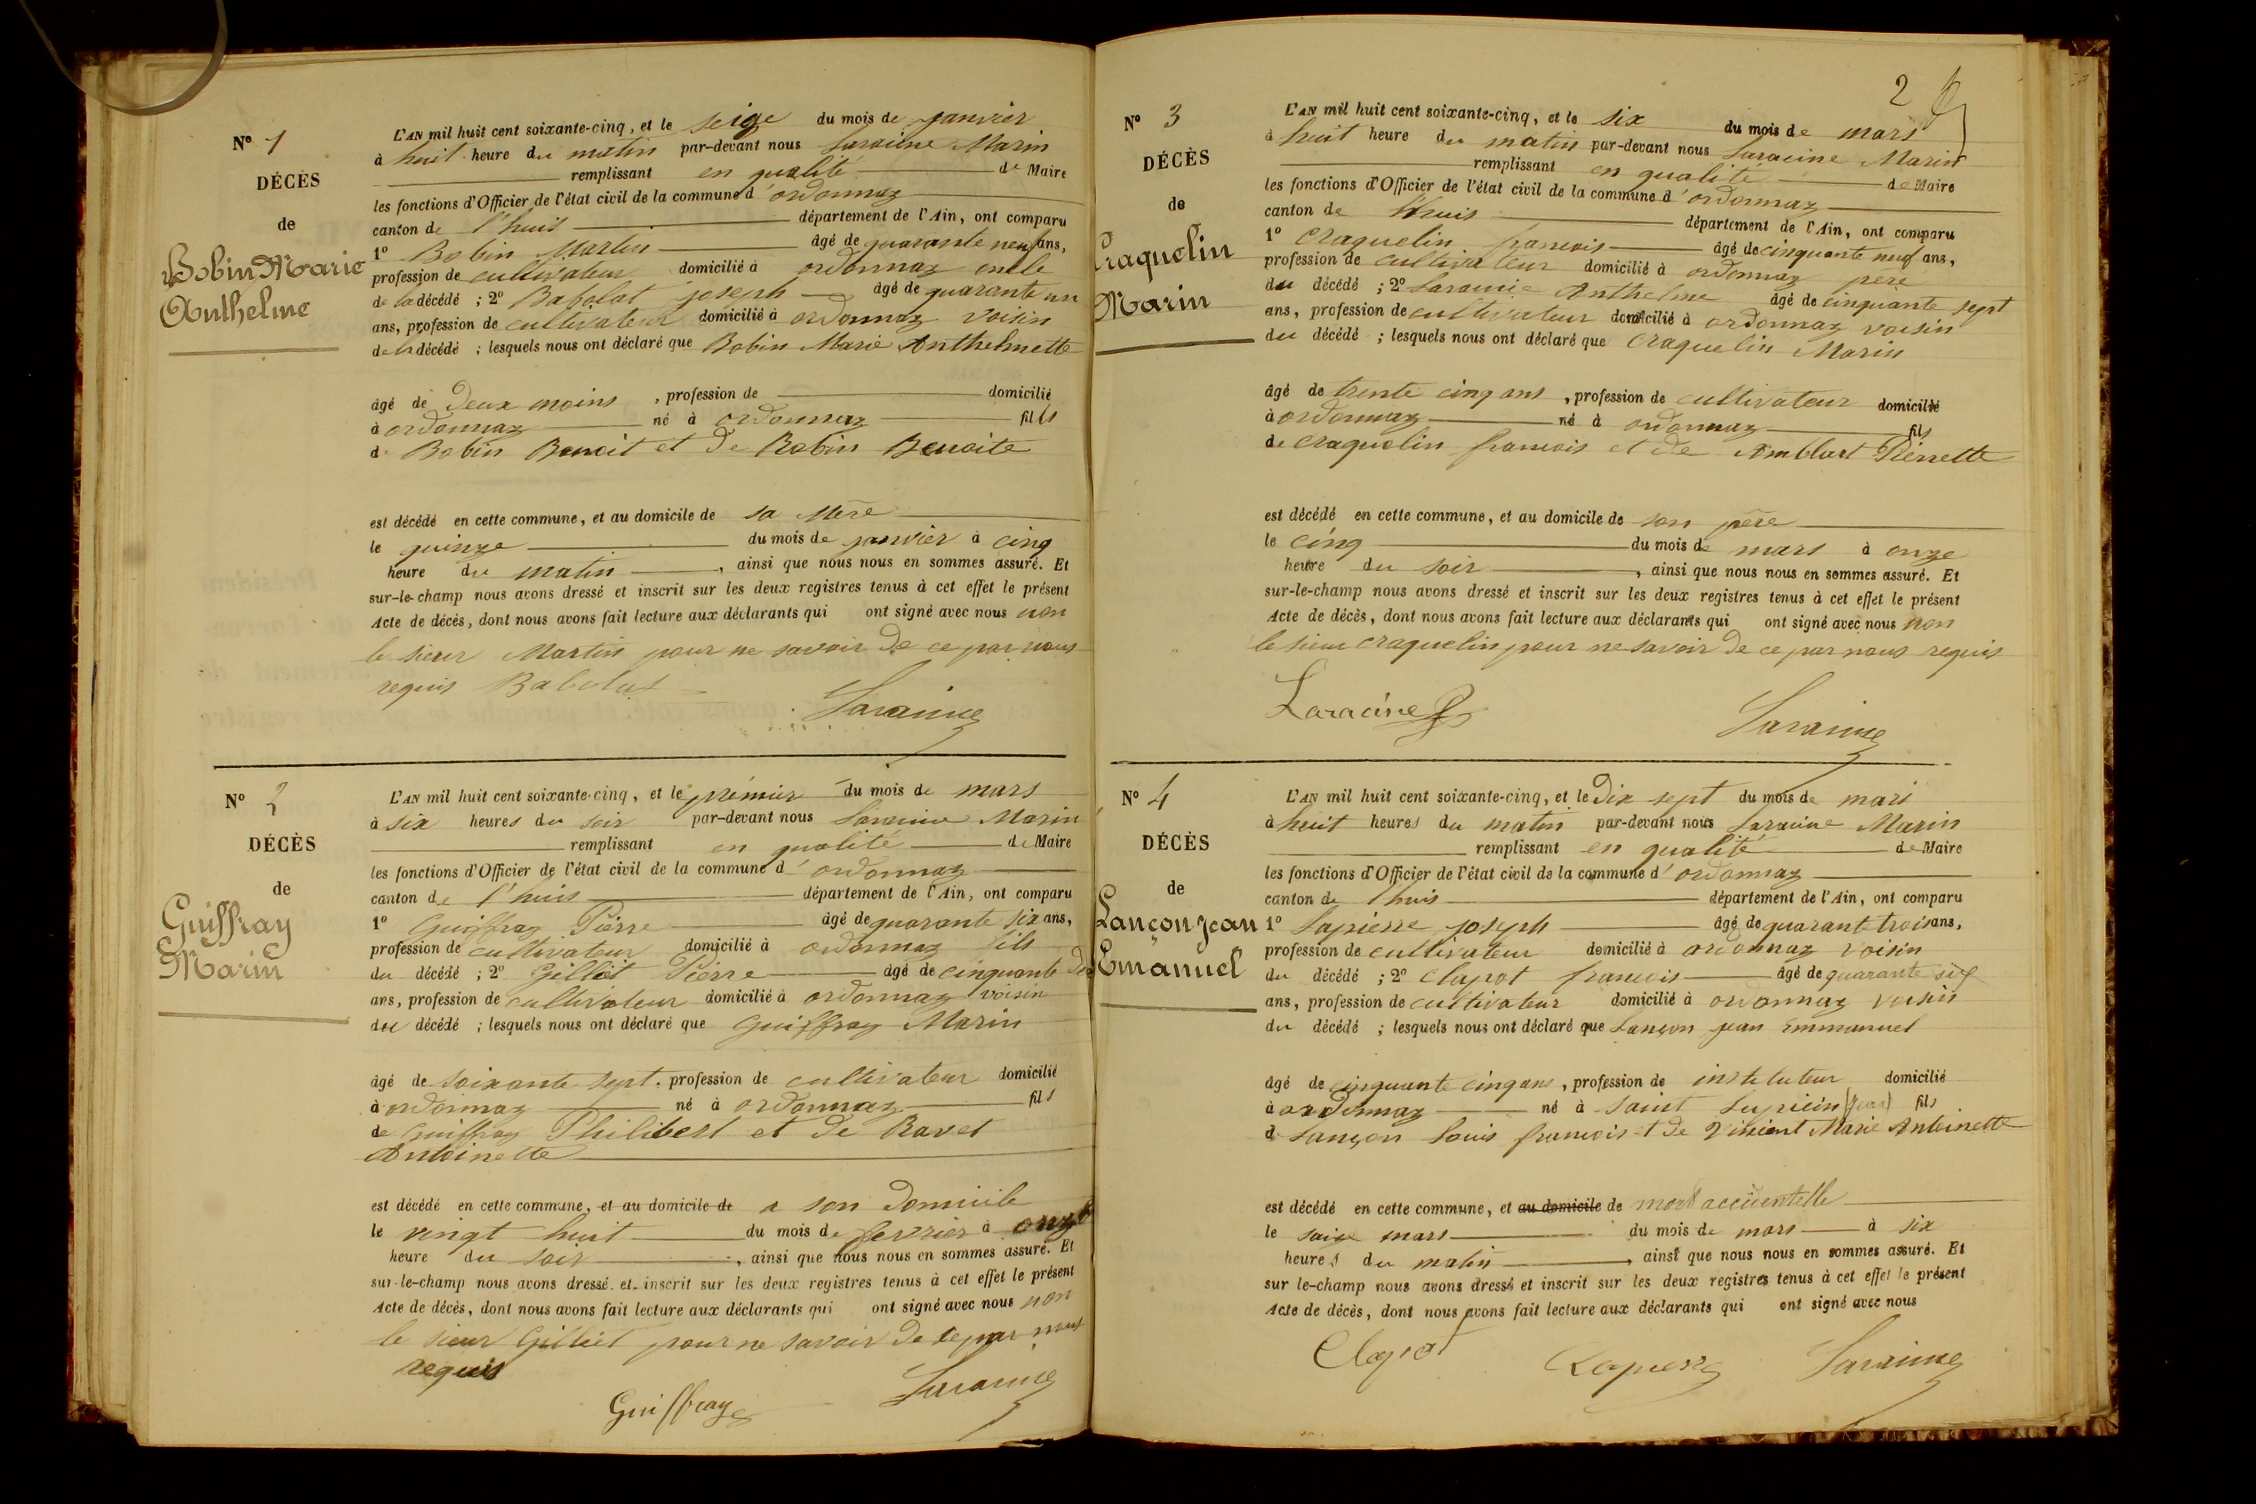 N° 1
DÉCÈS
de
Bobin Marie
Anthelme
L'AN mil huit cent soixante-cinq, et le seize du mois de janvier
à huit heure du matin par-devant nous Laracine Marin
remplissant en qualité de Maire
les fonctions d'Officier de l'état civil de la commune d'ordonnaz
canton de l'huis département de l'Ain, ont comparu
1° Bobin Martin âgé de quarante neuf ans,
profession de cultivateur domicilié à ordonnaz oncle
de la décédé ; 2° Babolat joseph âgé de quarante un
ans, profession de cultivateur domicilié à ordonnaz voisin
de la décédé ; lesquels nous ont déclaré que Bobin Marie Anthelmette
âgé de deux moins, profession de domicilié
à ordonnaz né à ordonnaz fils
de Bobin Benoit et de Robin Benoite
est décédé en cette commune, et au domicile de sa mère
le quinze du mois de janvier à cinq
heure du matin, ainsi que nous nous en sommes assuré. Et
sur-le-champ nous avons dressé et inscrit sur les deux registres tenus à cet effet le présent
Acte de décès, dont nous avons fait lecture aux déclarants qui ont signé avec nous non
le sieur Martin pour ne savoir de ce par nous
requis Babolat Laracine
N° 2
DÉCÈS
de
Guiffray
Marin
L'AN mil huit cent soixante-cinq, et le premier du mois de mars
à six heures du soir par-devant nous Laracine Marin
remplissant en qualité de Maire
les fonctions d'Officier de l'état civil de la commune d'ordonnaz
canton de l'huis département de l'Ain, ont comparu
1° Guiffray Pierre âgé de quarante six ans,
profession de cultivateur domicilié à ordonnaz fils
du décédé ; 2° Gilliet Pierre âgé de cinquante
ans, profession de cultivateur domicilié à ordonnaz voisin
du décédé ; lesquels nous ont déclaré que Guiffray Marin
âgé de soixante sept, profession de cultivateur domicilié
à ordonnaz né à ordonnaz fils
de Guiffray Philibert et de Ravet
Antoinette
est décédé en cette commune, et au domicile de a son domicile
le vingt huit du mois de fevrier à onze
heure du soir, ainsi que nous nous en sommes assuré. Et
sur-le-champ nous avons dressé et inscrit sur les deux registres tenus à cet effet le présent
Acte de décès, dont nous avons fait lecture aux déclarants qui ont signé avec nous non
le sieur Gilliet pour ne savoir de ce par nous
requis
Guiffray Laracine
2
N° 3
DÉCÈS
de
Craquelin
Marin
L'AN mil huit cent soixante-cinq, et le six du mois de mars
à huit heure du matin par-devant nous Laracine Marin
remplissant en qualité de Maire
les fonctions d'Officier de l'état civil de la commune d'ordonnaz
canton de l'huis département de l'Ain, ont comparu
1° Craquelin françois âgé de cinquante neuf ans,
profession de cultivateur domicilié à ordonnaz père
du décédé ; 2° Laracine Anthelme âgé de cinquante sept
ans, profession de cultivateur domicilié à ordonnaz voisin
du décédé ; lesquels nous ont déclaré que Craquelin Marin
âgé de trente cinq ans, profession de cultivateur domicilié
à ordonnaz né à ordonnaz fils
de Craquelin francois et de Amblart Pierrette
est décédé en cette commune, et au domicile de son père
le cinq du mois de mars à onze
heure du soir, ainsi que nous nous en sommes assuré. Et
sur-le-champ nous avons dressé et inscrit sur les deux registres tenus à cet effet le présent
Acte de décès, dont nous avons fait lecture aux déclarants qui ont signé avec nous non
le sieur Craquelin pour ne savoir de ce par nous requis
Laracine Laracine
N° 4
DÉCÈS
de
Lançon Jean
Emanuel
L'AN mil huit cent soixante-cinq, et le dix sept du mois de mars
à huit heures du matin par-devant nous Laracine Marin
remplissant en qualité de Maire
les fonctions d'Officier de l'état civil de la commune d'ordonnaz
canton de l'huis département de l'Ain, ont comparu
1° Lapierre joseph âgé de quarante trois ans,
profession de cultivateur domicilié à ordonnaz voisin
du décédé ; 2° Clapot francois âgé de quarante six
ans, profession de cultivateur domicilié à ordonnaz voisin
du décédé ; lesquels nous ont déclaré que Lançon jean Emmanuel
âgé de cinquante cinq ans, profession de instituteur domicilié
à ordonnaz né à saint Lupicin (jura) fils
de Lançon Louis francois et de Vincent Marie Antoinette
est décédé en cette commune, et au domicile de mort accidentelle
le saize mars du mois de mars à six
heures du matin, ainsi que nous nous en sommes assuré. Et
sur le-champ nous avons dressé et inscrit sur les deux registres tenus à cet effet le présent
Acte de décès, dont nous avons fait lecture aux déclarants qui ont signé avec nous
Clapot Lapierre Laracine